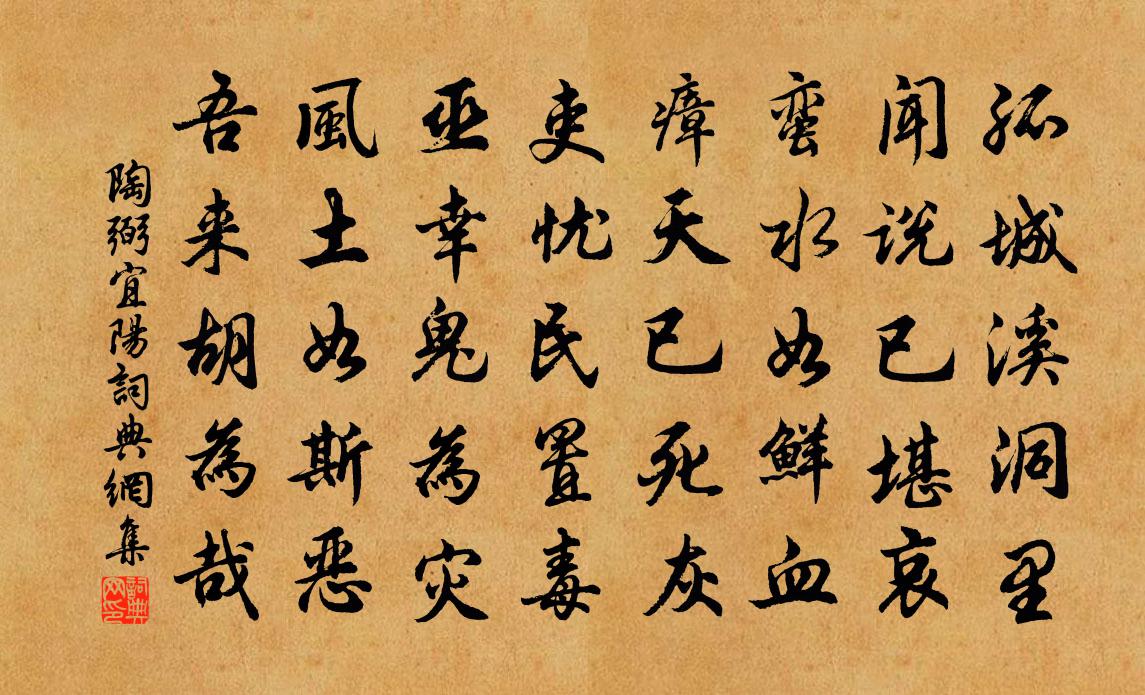 孤城溪洞里
闻说已堪哀
蛮水如鲜血
瘴天已死灰
吏忧民置毒
巫幸鬼为灾
風土如斯恶
吾来胡为哉
陶弼宜陽詞典網集
詞典网印